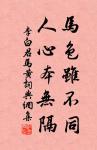 馬色雖不同
人心本無隔
李白君馬黃詞典網集